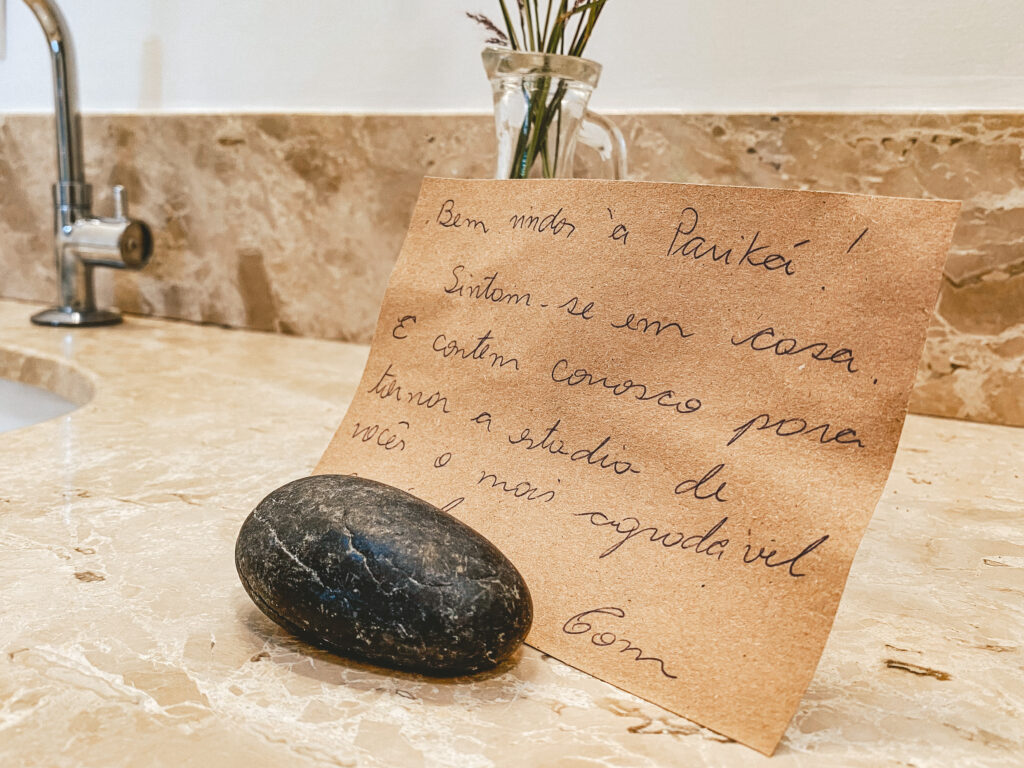 Bem vindos à Pariká!
Sintam-se em casa.
E contem conosco para
tornar a estadia de
vocês o mais agradável
Com